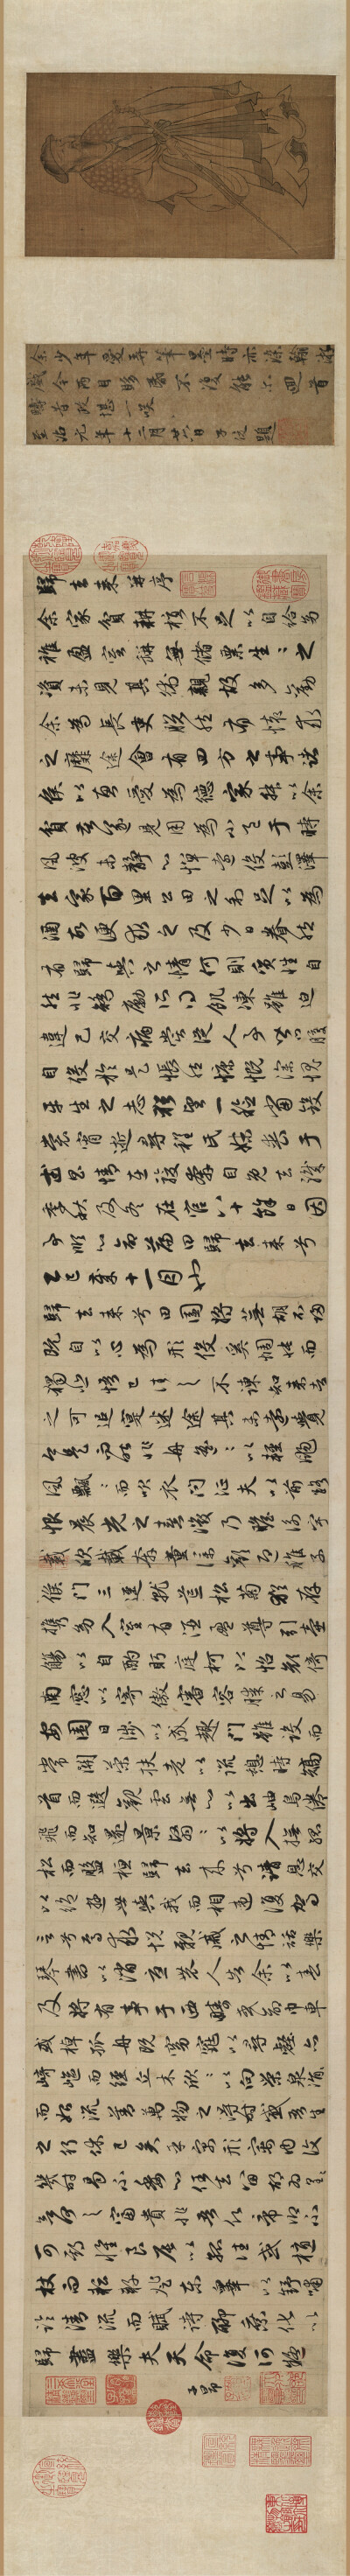 余少年愛弄筆墨時亦染翰游
戲今兩目眵昏不復能亦迴首
疇昔殆堪一咲
至治元年十二月廿六日子俊題
歸去來并序
余家貧耕植不足以自給幼
稚盈室缾無儲粟生〻之
資未見其術親故多勸
余為長吏脫然有懷求
之靡途會有四方之事諸
侯以惠愛為德家叔以余
貧苦遂見用為小邑于時
風波未靜心憚遠役彭澤
去家百里公田之利足以為
酒故便求之及少日眷然
有歸與之情何則質性自
然非矯勵所得飢凍雖迫
違己交病嘗從人事皆口腹
自役於是悵然慷慨深愧
平生之志猶望一稔當斂
裳宵逝尋程氏妹喪于
武昌情在駿奔自免去職
季秋及冬在官八十餘日因
事順心命篇曰歸去來兮
乙巳歲十一月也
歸去來兮田園將蕪胡不歸
既自以心為形役奚惆悵而
獨悲悟已往之不諫知來者
之可追寔迷途其未遠覺
今是而昨非舟遙〻以輕颺
風飄〻而吹衣問征夫以前路
恨晨光之熹微乃瞻衡宇
載欣載奔童僕歡迎稚子
候門三逕就荒松菊猶存
攜幼入室有酒盈尊引壺
觴以自酌眄庭柯以怡顏倚
南窓以寄傲審容膝之易
安園日涉以成趣門雖設而
常關策扶老以流憩時矯
首而遐觀雲無心以出岫鳥倦
飛而知還景翳〻以將入撫孤
松而盤桓歸去來兮請息交
以絕遊世與我而相遺復駕
言兮焉求悅親戚之情話樂
琴書以消憂農人告余以春
及將有事于西疇或命巾車
或棹孤舟既窈窕以尋壑亦
崎嶇而經丘木欣〻以向榮泉涓〻
而始流善萬物之得時感吾生
之行休已矣乎寓形宇內復
幾時曷不委心任去留胡為遑〻
欲何之富貴非吾願帝鄉不
可期懷良辰以孤往或植
杖而耘耔登東皋以舒嘯
臨清流而賦詩聊乘化以
歸盡樂夫天命復何疑
子昂